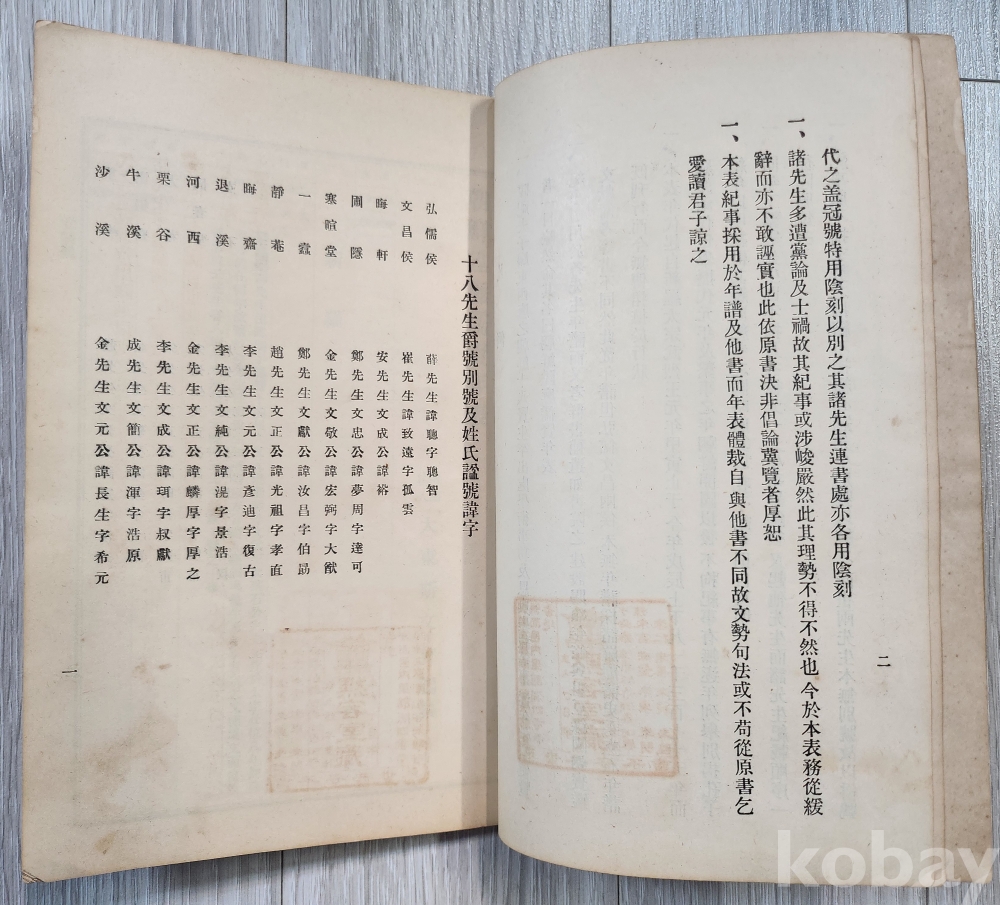 代之盖冠號特用陰刻以別之其諸先生連書處亦各用陰刻
一、諸先生多遭黨論及士禍故其紀事或涉峻嚴然此其理勢不得不然也今於本表務從緩
辭而亦不敢誣實也此依原書決非倡論冀覽者厚恕
一、本表紀事採用於年譜及他書而年表體裁自與他書不同故文勢句法或不苟從原書乞
愛讀君子諒之
二
十八先生爵號別號及姓氏謚號諱字
弘儒侯 薛先生諱聰字聰智
文昌侯 崔先生諱致遠字孤雲
晦軒 安先生文成公諱裕
圃隱 鄭先生文忠公諱夢周字達可
寒暄堂 金先生文敬公諱宏弼字大猷
一蠹 鄭先生文獻公諱汝昌字伯勗
靜菴 趙先生文正公諱光祖字孝直
晦齋 李先生文元公諱彥迪字復古
退溪 李先生文純公諱滉字景浩
河西 金先生文正公諱麟厚字厚之
栗谷 李先生文成公諱珥字叔獻
牛溪 成先生文簡公諱渾字浩原
沙溪 金先生文元公諱長生字希元
一
kobay